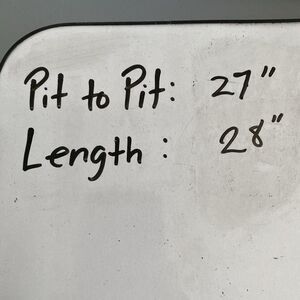 Pit to Pit: 27"
Length: 28"